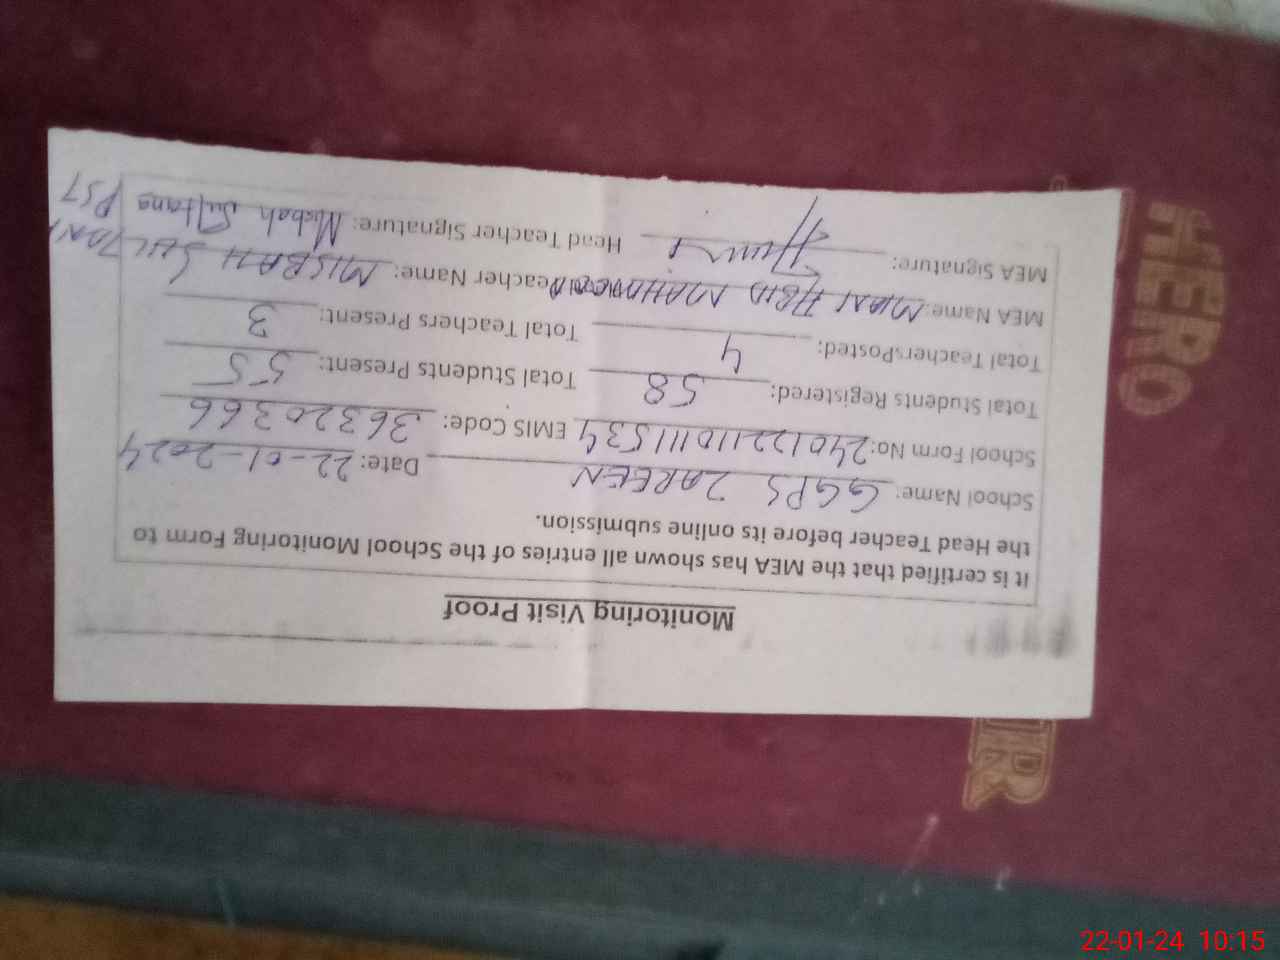 Monitoring Visit Proof
It is certified that the MEA has shown all entries of the School Monitoring Form to
the Head Teacher before its online submission.
School Name: GGPS ZAREEN Date: 22-01-2024
School Form No: 240122110111534 EMIS Code: 36320366
Total Students Registered: 58 Total Students Present: 55
Total TeachersPosted: 4 Total Teachers Present: 3
MEA Name: MIAN ABID MAHMOOD Teacher Name: MISBAH SULTANA
MEA Signature: Head Teacher Signature: Misbah Sultana PST
HERO
22-01-24 10:15